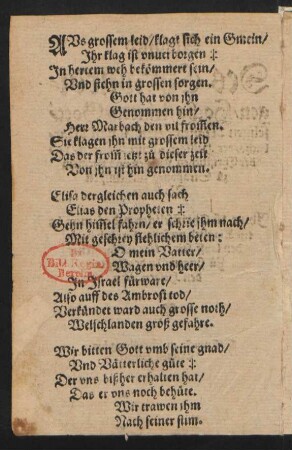 AVs grossem leid/klagt sich ein Gmein/
Ihr klag ist vnuerborgen :|:
In hertem weh bekömmert sein/
Vnd stehn in grossen sorgen.
Gott hat von jhn
Genommen hin/
Herr Marbach den vil from̃en.
Sie klagen jhn mit grossem leid
Das der from̃ jetz zů dieser zeit
Von jhn ist hin genommen.
Elisa dergleichen auch sach
Elias den Propheten :|:
Gehn him̃el fahrn/ er schrie jhm nach/
Mit geschrey flehlichem beten:
O mein Vatter/
Wagen vnd heer/
In Israel fürwar/
Also auff des Ambrosi tod/
Verkündet ward auch grosse noth/
Welschlanden groß gefahre.
Wir bitten Gott vmb seine gnad/
Vnd Vätterliche güte :|:
Der vns bißher erhalten hat/
Das er vns noch behüte.
Wir trawen jhm
Nach seiner stim.